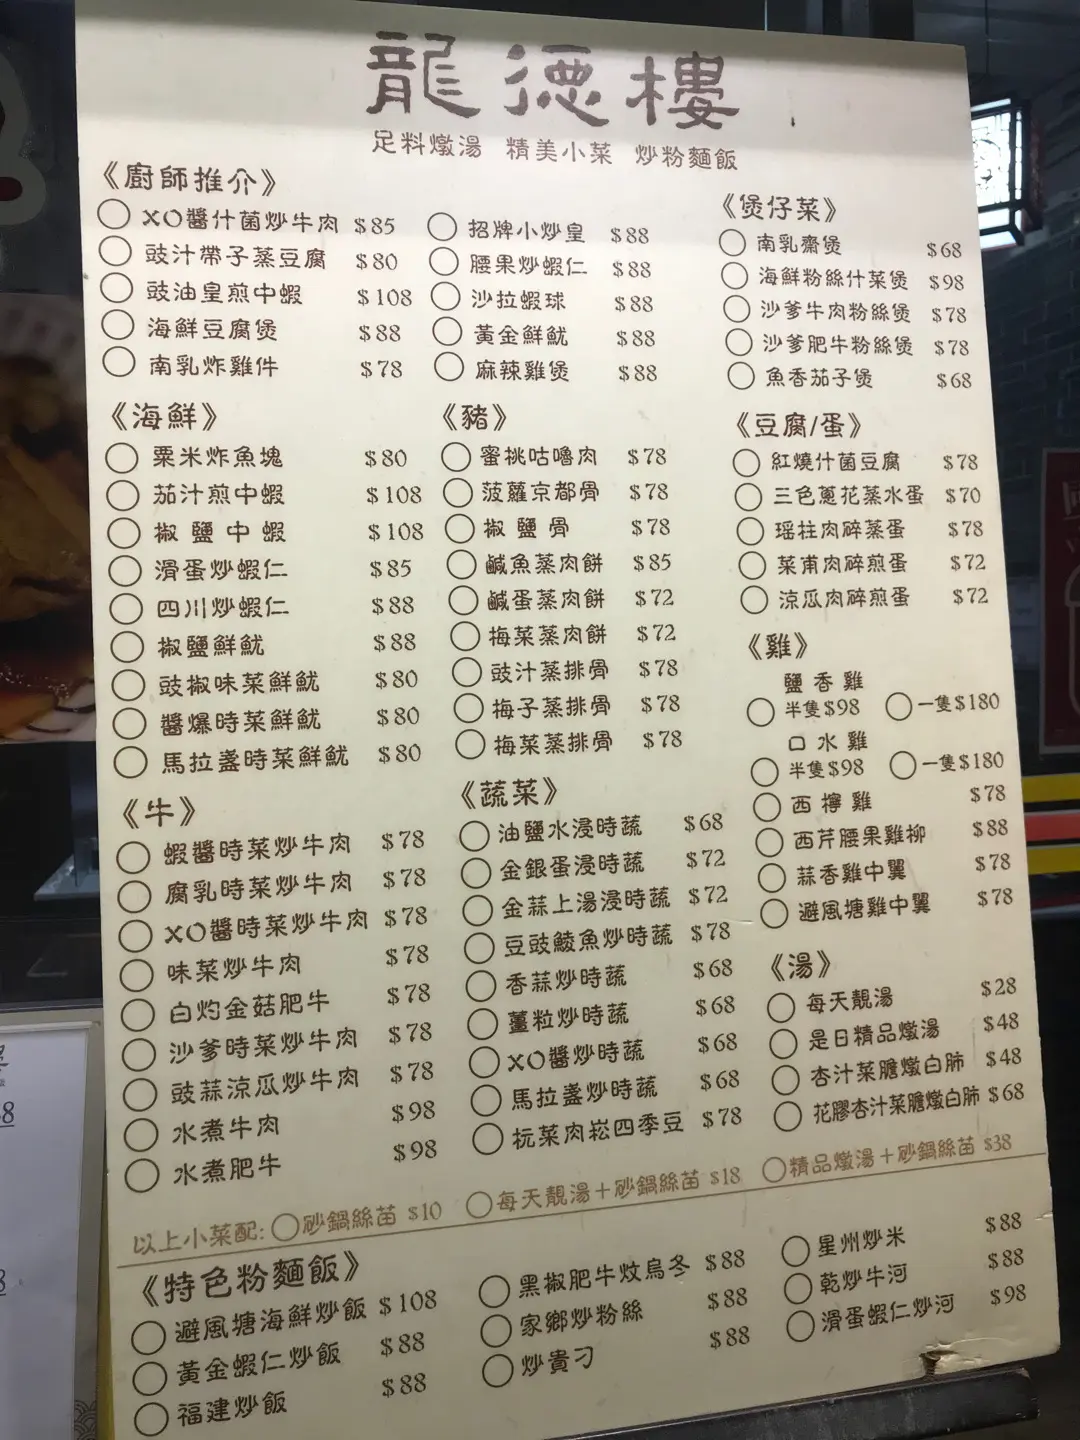 龍德樓
足料燉湯 精美小菜 炒粉麵飯
《廚師推介》
XO醬什菌炒牛肉 $85
豉汁帶子蒸豆腐 $80
豉油皇煎中蝦 $108
海鮮豆腐煲 $88
南乳炸雞件 $78
招牌小炒皇 $88
腰果炒蝦仁 $88
沙拉蝦球 $88
黃金鮮魷 $88
麻辣雞煲 $88
《煲仔菜》
南乳齋煲 $68
海鮮粉絲什菜煲 $98
沙爹牛肉粉絲煲 $78
沙爹肥牛粉絲煲 $78
魚香茄子煲 $68
《海鮮》
粟米炸魚塊 $80
茄汁煎中蝦 $108
椒鹽中蝦 $108
滑蛋炒蝦仁 $85
四川炒蝦仁 $88
椒鹽鮮魷 $88
豉椒味菜鮮魷 $80
醬爆時菜鮮魷 $80
馬拉盞時菜鮮魷 $80
《豬》
蜜桃咕嚕肉 $78
菠蘿京都骨 $78
椒鹽骨 $78
鹹魚蒸肉餅 $85
鹹蛋蒸肉餅 $72
梅菜蒸肉餅 $72
豉汁蒸排骨 $78
梅子蒸排骨 $78
梅菜蒸排骨 $78
《豆腐/蛋》
紅燒什菌豆腐 $78
三色蔥花蒸水蛋 $70
瑶柱肉碎蒸蛋 $78
菜甫肉碎煎蛋 $72
涼瓜肉碎煎蛋 $72
《雞》
鹽香雞
半隻$98 一隻$180
口水雞
半隻$98 一隻$180
西檸雞 $78
西芹腰果雞柳 $88
蒜香雞中翼 $78
避風塘雞中翼 $78
《牛》
蝦醬時菜炒牛肉 $78
腐乳時菜炒牛肉 $78
XO醬時菜炒牛肉 $78
味菜炒牛肉 $78
白灼金菇肥牛 $78
沙爹時菜炒牛肉 $78
豉蒜涼瓜炒牛肉 $78
水煮牛肉 $98
水煮肥牛 $98
《蔬菜》
油鹽水浸時蔬 $68
金銀蛋浸時蔬 $72
金蒜上湯浸時蔬 $72
豆豉鯪魚炒時蔬 $78
香蒜炒時蔬 $68
薑粒炒時蔬 $68
XO醬炒時蔬 $68
馬拉盞炒時蔬 $68
杬菜肉崧四季豆 $78
《湯》
每天靚湯 $28
是日精品燉湯 $48
杏汁菜膽燉白肺 $48
花膠杏汁菜膽燉白肺 $68
以上小菜配: 砂鍋絲苗 $10 每天靚湯+砂鍋絲苗 $18 精品燉湯+砂鍋絲苗 $38
《特色粉麵飯》
避風塘海鮮炒飯 $108
黃金蝦仁炒飯 $88
福建炒飯 $88
黑椒肥牛炆烏冬 $88
家鄉炒粉絲 $88
炒貴刁 $88
星州炒米 $88
乾炒牛河 $88
滑蛋蝦仁炒河 $98